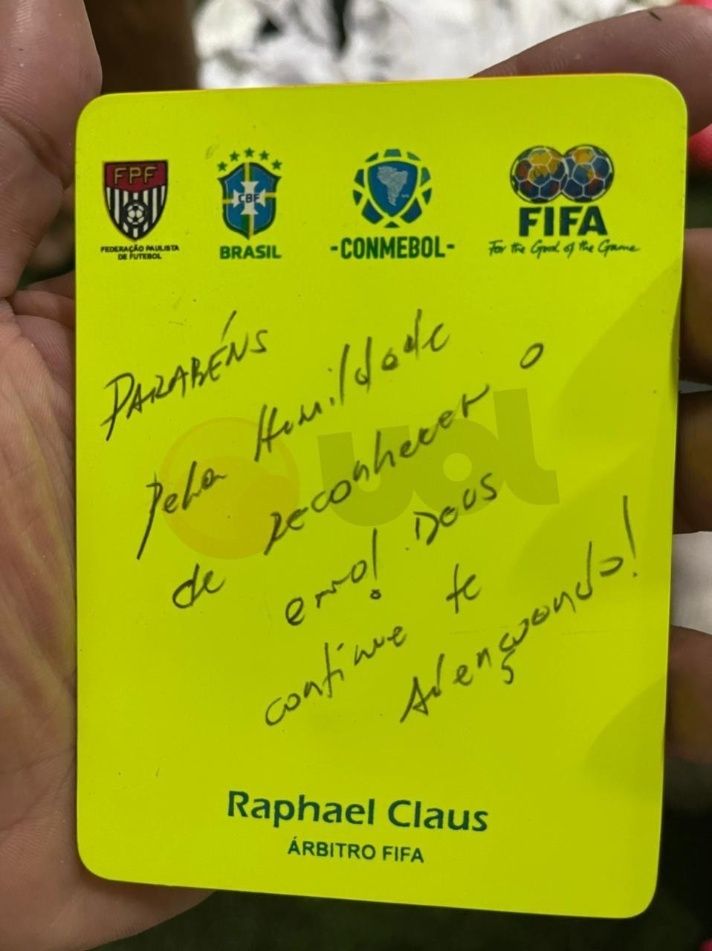 FPF
FEDERAÇÃO PAULISTA
DE FUTEBOL
CBF
BRASIL
-CONMEBOL-
FIFA
For the Good of the Game
PARABÉNS
pela Humildade
de reconhecer o
erro! DEUS
continue te
Abençoando!
uol
Raphael Claus
ÁRBITRO FIFA